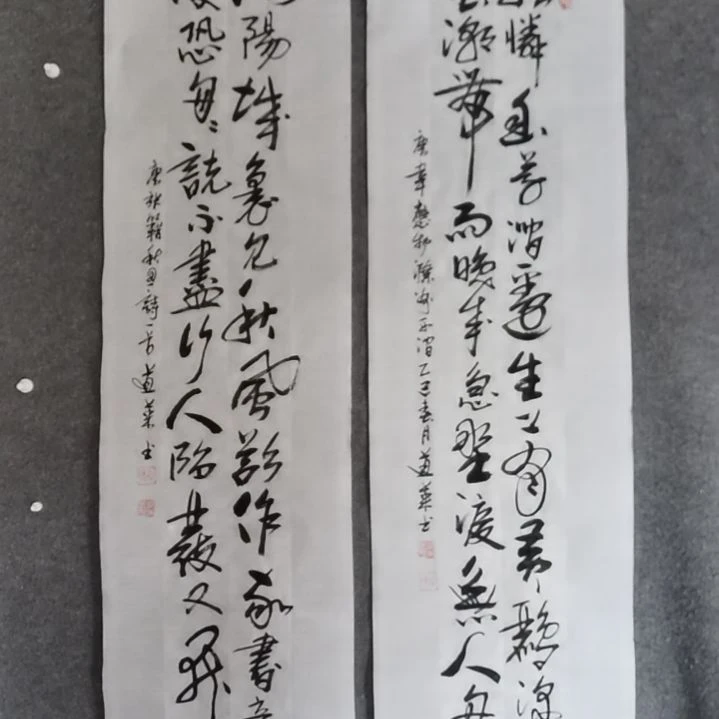 憐幽草澗邊生上有黄鸝深
潮帶雨晚來急野渡無人舟
唐韋應物滁州西澗乙巳春月书
陽城裏見秋風欲作家書意
復恐匆匆説不盡行人臨發又開
唐張籍秋思詩一首书